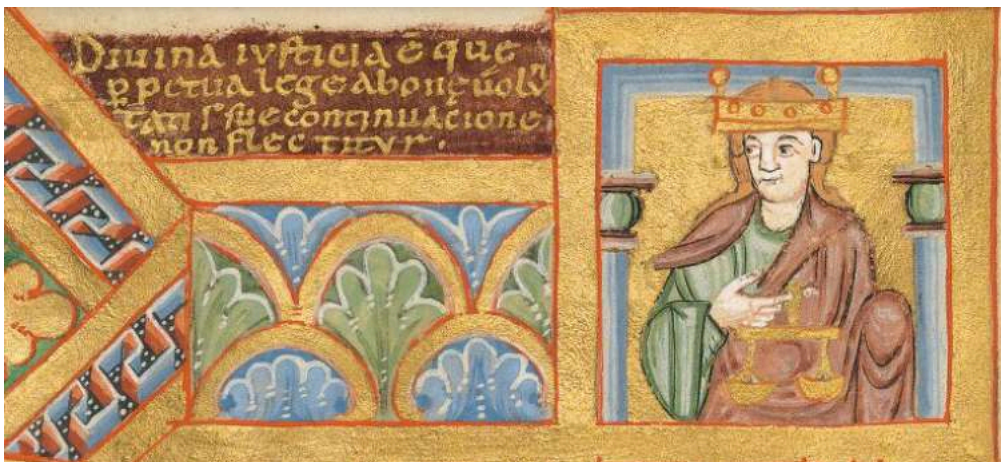 Diuina iuſticia ē que
ꝑpetua lege a bonę uolūⁿ
tatiſ ſue continuacione
non flectitur.